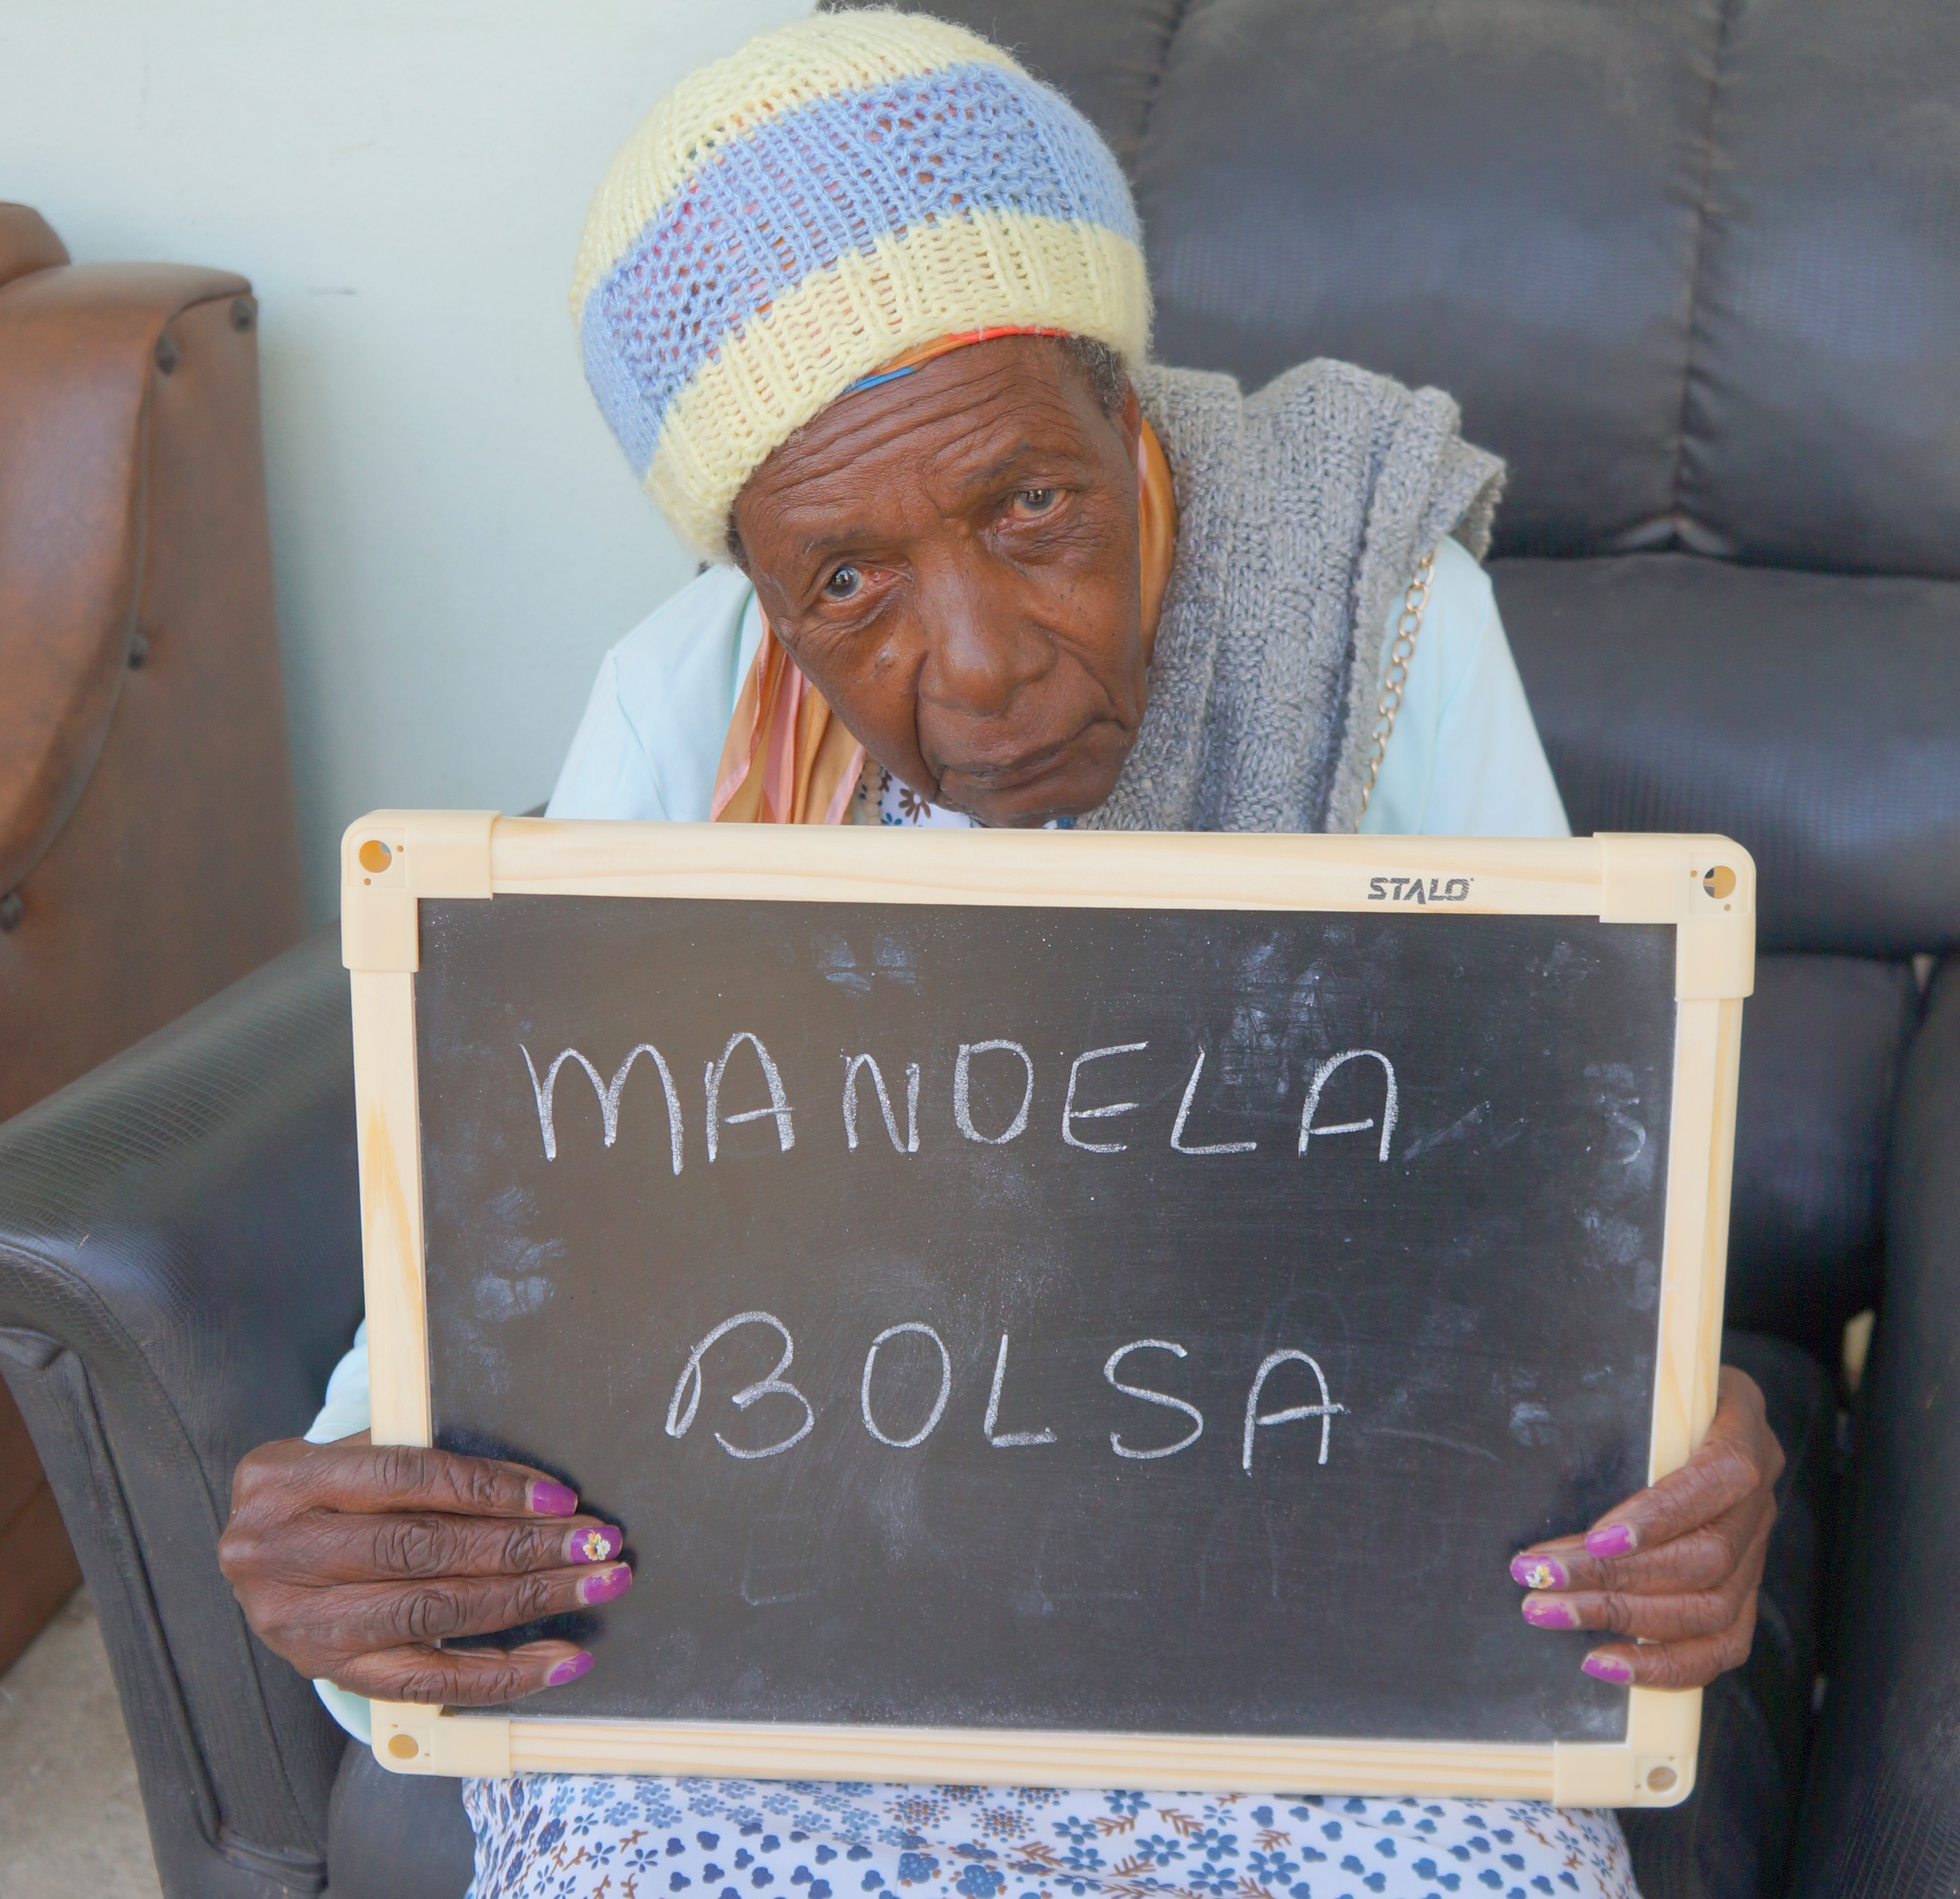 STALO
MANDELA
BOLSA